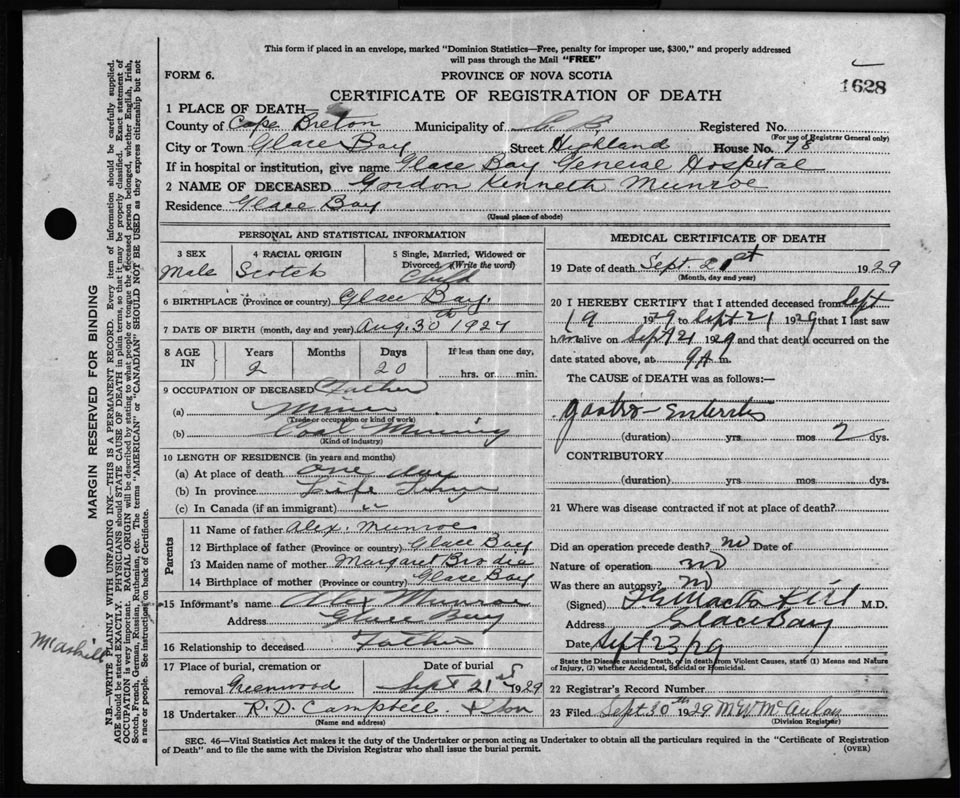 This form if placed in an envelope, marked "Dominion Statistics—Free, penalty for improper use, $300," and properly addressed
will pass through the Mail "FREE"
FORM 6.
PROVINCE OF NOVA SCOTIA
1628
CERTIFICATE OF REGISTRATION OF DEATH
1 PLACE OF DEATH—
County of Cape Breton Municipality of C. B. Registered No.
(For use of Registrar General only)
City or Town Glace Bay Street Highland House No. 78
If in hospital or institution, give name Glace Bay General Hospital
2 NAME OF DECEASED Gordon Kenneth Munroe
Residence Glace Bay
(Usual place of abode)
PERSONAL AND STATISTICAL INFORMATION
3 SEX 4 RACIAL ORIGIN 5 Single, Married, Widowed or
Divorced (Write the word)
Male Scotch Child
6 BIRTHPLACE (Province or country) Glace Bay.
7 DATE OF BIRTH (month, day and year) Aug. 30th 1927
8 AGE IN Years Months Days If less than one day,
2 20 hrs. or min.
9 OCCUPATION OF DECEASED Father
(a) Miner
(Trade or occupation or kind of work)
(b) Coal Mining
(Kind of industry)
10 LENGTH OF RESIDENCE (in years and months)
(a) At place of death one day
(b) In province Life Time
(c) In Canada (if an immigrant) "
Parents
11 Name of father Alex. Munroe
12 Birthplace of father (Province or country) Glace Bay
13 Maiden name of mother Margaret Brodie
14 Birthplace of mother (Province or country) Glace Bay
15 Informant's name Alex Munroe
Address Glace Bay
16 Relationship to deceased Father
17 Place of burial, cremation or Date of burial
removal Greenwood Sept 21st 1929
18 Undertaker R. D. Campbell & Son
(Name and address)
MEDICAL CERTIFICATE OF DEATH
19 Date of death Sept. 21st 1929
(Month, day and year)
20 I HEREBY CERTIFY that I attended deceased from Sept
19 1929 to Sept 21 1929 that I last saw
him alive on Sept 21 1929 and that death occurred on the
date stated above, at 9 A m.
The CAUSE of DEATH was as follows:—
Gastro-Enteritis
(duration) yrs. mos 2 dys.
CONTRIBUTORY
(duration) yrs. mos. dys.
21 Where was disease contracted if not at place of death?
Did an operation precede death? no Date of
Nature of operation no
Was there an autopsy? no
(Signed) M.D.
Address Glace Bay
Date Sept 23/29
State the Disease causing Death, or in death from Violent Causes, state (1) Means and Nature
of Injury, (2) whether Accidental, Suicidal or Homicidal.
22 Registrar's Record Number
23 Filed Sept 30th 1929 M W McAulay
(Division Registrar)
SEC. 46—Vital Statistics Act makes it the duty of the Undertaker or person acting as Undertaker to obtain all the particulars required in the "Certificate of Registration
of Death" and to file the same with the Division Registrar who shall issue the burial permit.
(OVER)
MARGIN RESERVED FOR BINDING
N.B.—WRITE PLAINLY WITH UNFADING INK—THIS IS A PERMANENT RECORD. Every item of information should be carefully supplied.
AGE should be stated EXACTLY. PHYSICIANS should STATE CAUSE OF DEATH in plain terms, so that it may be properly classified. Exact statement of
OCCUPATION is very important. RACIAL ORIGIN will be described by stating to what people or tongue the deceased person belonged, whether English, Irish,
Scotch, French, German, Russian, Ruthenian, etc. The terms "AMERICAN" or "CANADIAN" SHOULD NOT BE USED as they express citizenship but not
a race or people. See instructions on back of Certificate.